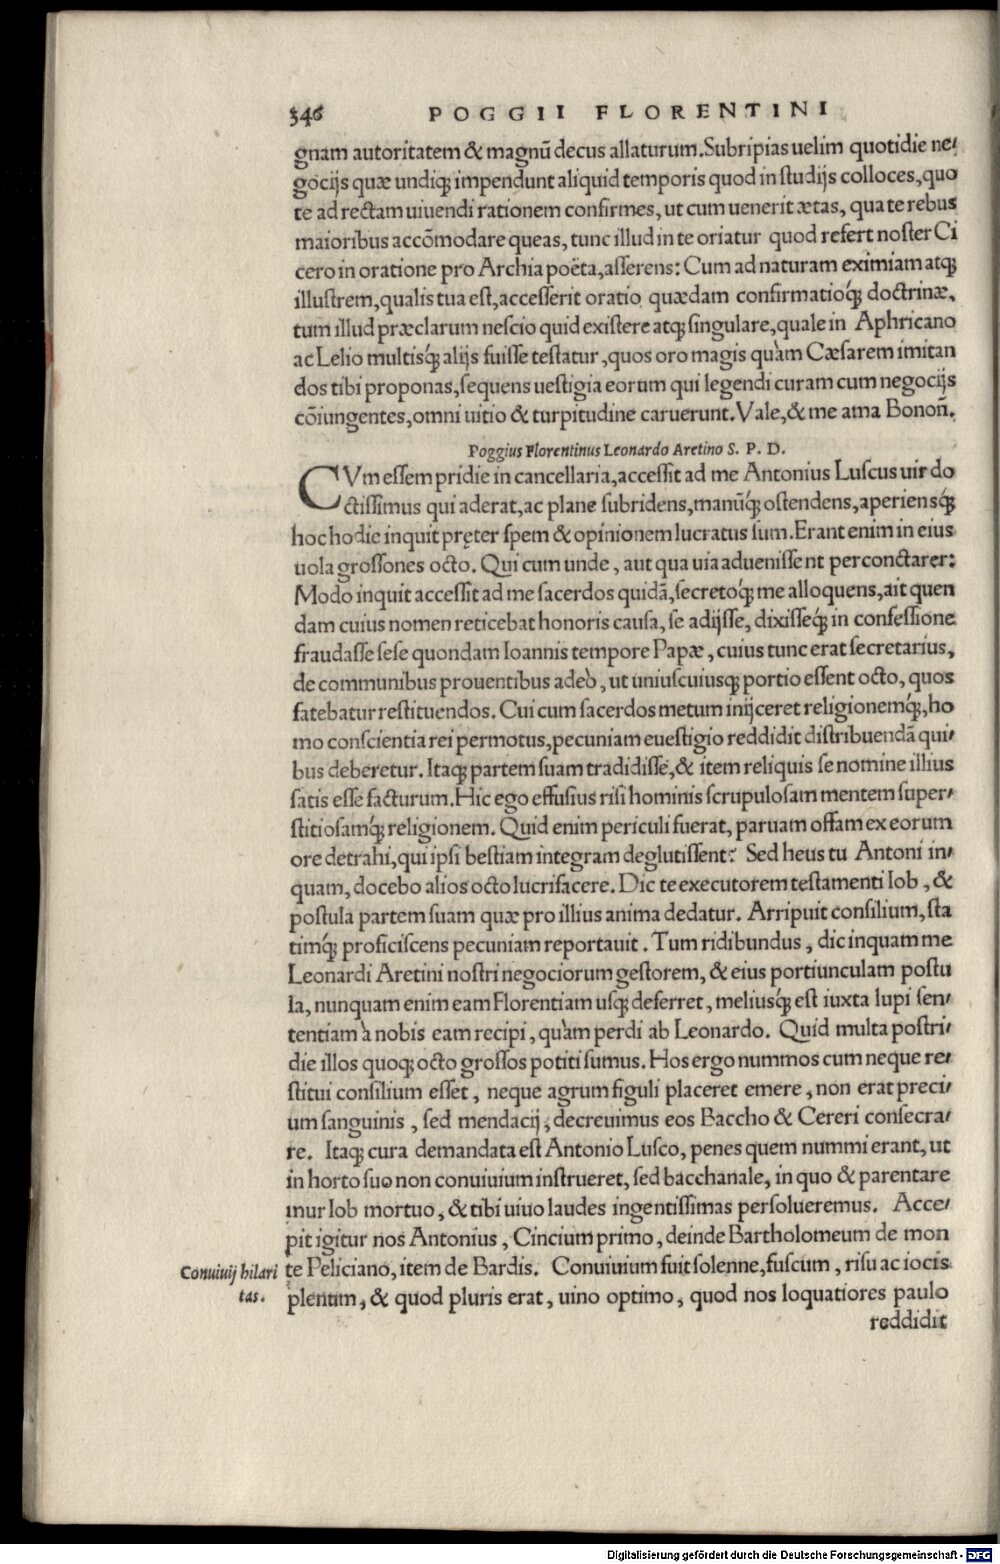 346 POGGII FLORENTINI
gnam autoritatem & magnū decus allaturum. Subripias uelim quotidie ne⸗
gocijs quæ undiq; impendunt aliquid temporis quod in ſtudijs colloces, quo
te ad rectam uiuendi rationem confirmes, ut cum uenerit ætas, qua te rebus
maioribus accōmodare queas, tunc illud in te oriatur quod refert noſter Ci
cero in oratione pro Archia poëta, aſſerens: Cum ad naturam eximiam atq;
illuſtrem, qualis tua eſt, acceſſerit oratio quædam confirmatioq́; doctrinæ,
tum illud præclarum neſcio quid exiſtere atq; ſingulare, quale in Aphricano
ac Lelio multisq́; alijs fuiſſe teſtatur, quos oro magis quàm Cæſarem imitan
dos tibi proponas, ſequens ueſtigia eorum qui legendi curam cum negocijs
cōiungentes, omni uitio & turpitudine caruerunt. Vale, & me ama Bonoñ.
Poggius Florentinus Leonardo Aretino S. P. D.
CVm eſſem pridie in cancellaria, acceſſit ad me Antonius Luſcus uir do
ctiſſimus qui aderat, ac plane ſubridens, manūq́; oſtendens, aperiensq́;
hoc hodie inquit pręter ſpem & opinionem lucratus ſum. Erant enim in eius
uola groſſones octo. Qui cum unde, aut qua uia adueniſſent perconctarer:
Modo inquit acceſſit ad me ſacerdos quidā, ſecretoq́; me alloquens, ait quen
dam cuius nomen reticebat honoris cauſa, ſe adijſſe, dixiſſeq́; in confeſſione
fraudaſſe ſeſe quondam Ioannis tempore Papæ, cuius tunc erat ſecretarius,
de communibus prouentibus adeò, ut uniuſcuiusq; portio eſſent octo, quos
fatebatur reſtituendos. Cui cum ſacerdos metum inijceret religionemq́;, ho
mo conſcientia rei permotus, pecuniam eueſtigio reddidit diſtribuendā qui⸗
bus deberetur. Itaq; partem ſuam tradidiſſe, & item reliquis ſe nomine illius
ſatis eſſe facturum. Hic ego effuſius riſi hominis ſcrupuloſam mentem ſuper⸗
ſtitioſamq́; religionem. Quid enim periculi fuerat, paruam offam ex eorum
ore detrahi, qui ipſi beſtiam integram deglutiſſent? Sed heus tu Antoni in⸗
quam, docebo alios octo lucrifacere. Dic te executorem teſtamenti Iob, &
poſtula partem ſuam quæ pro illius anima dedatur. Arripuit conſilium, ſta
timq́; proficiſcens pecuniam reportauit. Tum ridibundus, dic inquam me
Leonardi Aretini noſtri negociorum geſtorem, & eius portiunculam poſtu
la, nunquam enim eam Florentiam uſq; deferret, meliusq́; eſt iuxta lupi ſen⸗
tentiam à nobis eam recipi, quàm perdi ab Leonardo. Quid multa poſtri⸗
die illos quoq; octo groſſos potiti ſumus. Hos ergo nummos cum neque re⸗
ſtitui conſilium eſſet, neque agrum figuli placeret emere, non erat preci⸗
um ſanguinis, ſed mendacij, decreuimus eos Baccho & Cereri conſecra⸗
re. Itaq; cura demandata eſt Antonio Luſco, penes quem nummi erant, ut
in horto ſuo non conuiuium inſtrueret, ſed bacchanale, in quo & parentare
mur Iob mortuo, & tibi uiuo laudes ingentiſſimas perſolueremus. Acce⸗
pit igitur nos Antonius, Cincium primo, deinde Bartholomeum de mon
te Peliciano, item de Bardis. Conuiuium fuit ſolenne, fuſcum, riſu ac iocis
plenum, & quod pluris erat, uino optimo, quod nos loquatiores paulo
reddidit
Conuiuij hilari
tas.
Digitalisierung gefördert durch die Deutsche Forschungsgemeinschaft - DFG